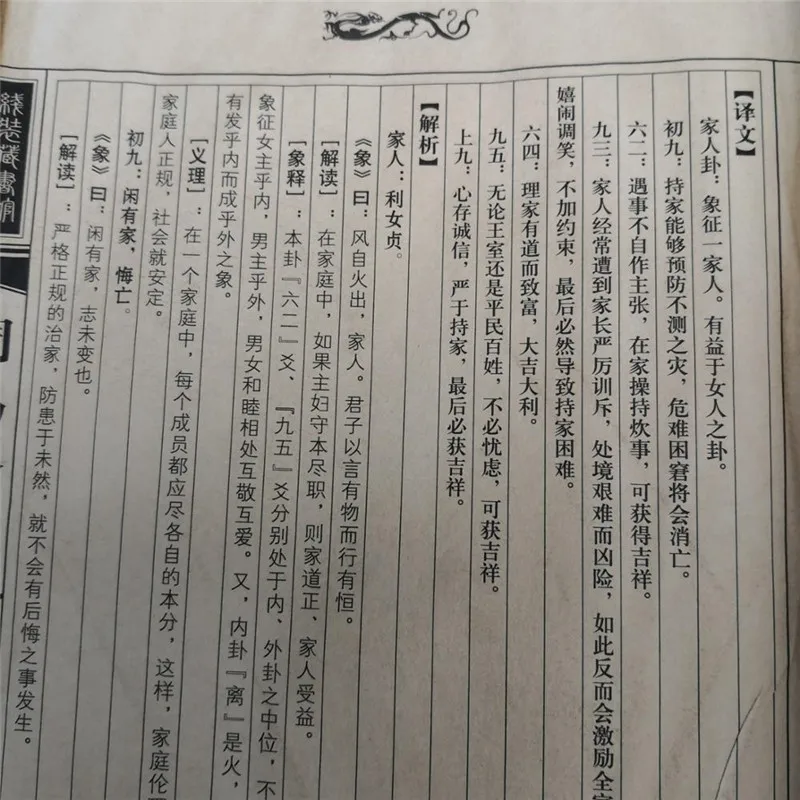 【译文】
家人卦：象征一家人。有益于女人之卦。
初九：持家能够预防不测之灾，危难困窘将会消亡。
六二：遇事不自作主张，在家操持炊事，可获得吉祥。
九三：家人经常遭到家长严厉训斥，处境艰难而凶险，如此反而会激励全家
嬉闹调笑，不加约束，最后必然导致持家困难。
六四：理家有道而致富，大吉大利。
九五：无论王室还是平民百姓，不必忧虑，可获吉祥。
上九：心存诚信，严于持家，最后必获吉祥。
【解析】
家人：利女贞。
《象》曰：风自火出，家人。君子以言有物而行有恒。
［解读］：在家庭中，如果主妇守本尽职，则家道正、家人受益。
［象释］：本卦『六二』爻、『九五』爻分别处于内、外卦之中位，不
象征女主乎内，男主乎外，男女和睦相处互敬互爱。又，内卦『离』是火，
有发乎内而成乎外之象。
［义理］：在一个家庭中，每个成员都应尽各自的本分，这样，家庭伦
家庭人正规，社会就安定。
初九：闲有家，悔亡。
《象》曰：闲有家，志未变也。
［解读］：严格正规的治家，防患于未然，就不会有后悔之事发生。
线装藏书馆